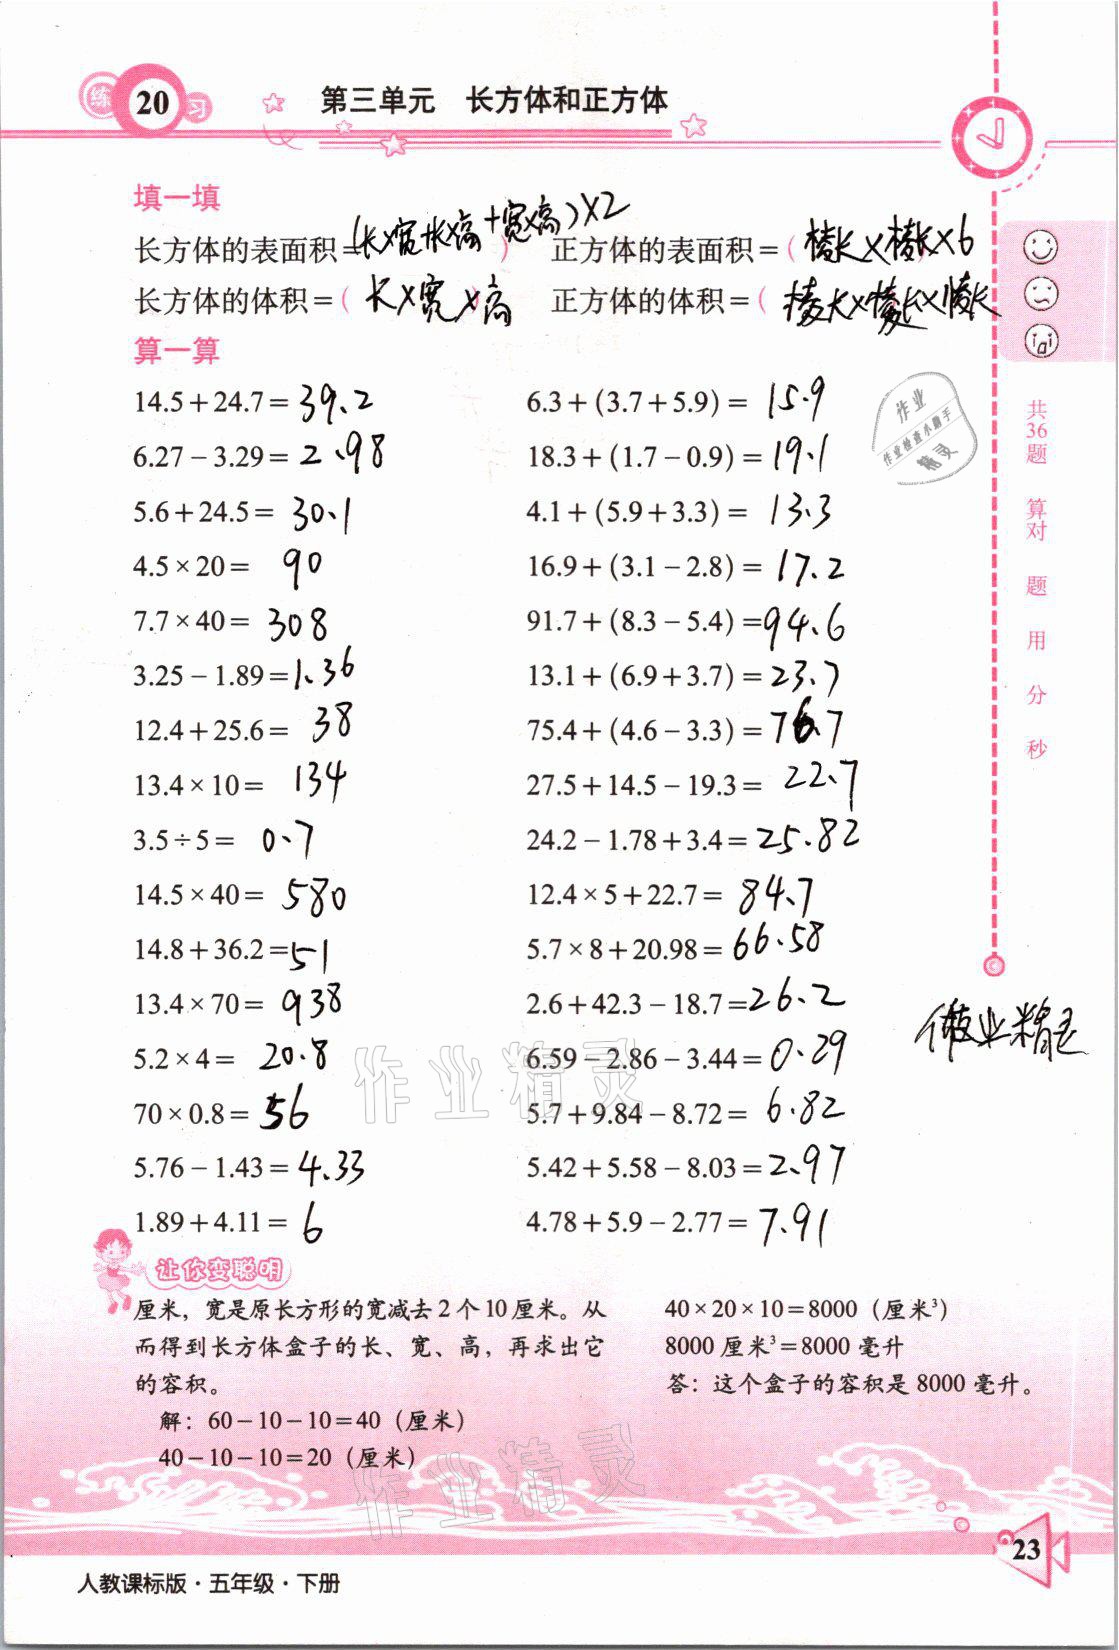 练20习 第三单元 长方体和正方体
填一填
长方体的表面积=(长×宽+长×高+宽×高)×2 正方体的表面积=(棱长×棱长×6
长方体的体积=(长×宽×高 正方体的体积=(棱长×棱长×棱长
算一算
14.5+24.7=39.2 6.3+(3.7+5.9)=15.9
6.27-3.29=2.98 18.3+(1.7-0.9)=19.1
5.6+24.5=30.1 4.1+(5.9+3.3)=13.3
4.5×20=90 16.9+(3.1-2.8)=17.2
7.7×40=308 91.7+(8.3-5.4)=94.6
3.25-1.89=1.36 13.1+(6.9+3.7)=23.7
12.4+25.6=38 75.4+(4.6-3.3)=76.7
13.4×10=134 27.5+14.5-19.3=22.7
3.5÷5=0.7 24.2-1.78+3.4=25.82
14.5×40=580 12.4×5+22.7=84.7
14.8+36.2=51 5.7×8+20.98=66.58
13.4×70=938 2.6+42.3-18.7=26.2
5.2×4=20.8 6.59-2.86-3.44=0.29
70×0.8=56 5.7+9.84-8.72=6.82
5.76-1.43=4.33 5.42+5.58-8.03=2.97
1.89+4.11=6 4.78+5.9-2.77=7.91
共36题 算对 题 用 分 秒
作业
作业检查小助手
精灵
做业精灵
作业精灵
让你变聪明
厘米，宽是原长方形的宽减去2个10厘米。从
而得到长方体盒子的长、宽、高，再求出它
的容积。
解：60-10-10=40（厘米）
40-10-10=20（厘米）
40×20×10=8000（厘米³）
8000厘米³=8000毫升
答：这个盒子的容积是8000毫升。
作业精灵
23
人教课标版·五年级·下册